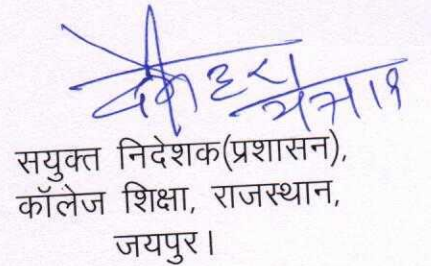 सयुक्त निदेशक(प्रशासन),
कॉलेज शिक्षा, राजस्थान,
जयपुर।